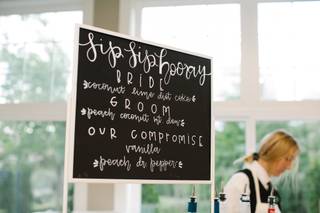 sip sip hooray
BRIDE
coconut lime diet coke
GROOM
peach coconut mt dew
OUR COMPROMISE
vanilla
peach dr pepper